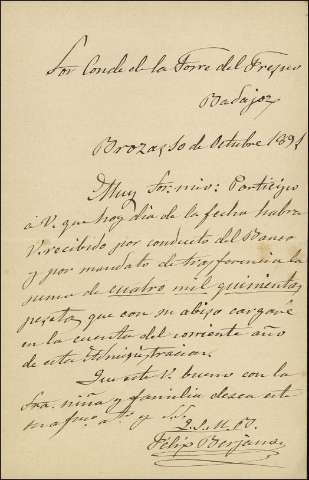 Sor Conde de la Torre del Fresno
Badajoz
Brozas 10 de Octubre 1891
Muy Sor. mio: Participo
á V. que hoy dia de la fecha habra
V. recibido por conducto del Banco
y por mandato de trasferencia la
suma de cuatro mil quinientas
pesetas que con su abijo cargaré
en la cuenta del corriente año
de esta Administracion.
Que este V. bueno con la
Sra. niña y familia desea este
su afmo. a. y S.S.
Q.S.M.B.
Felix Berjano